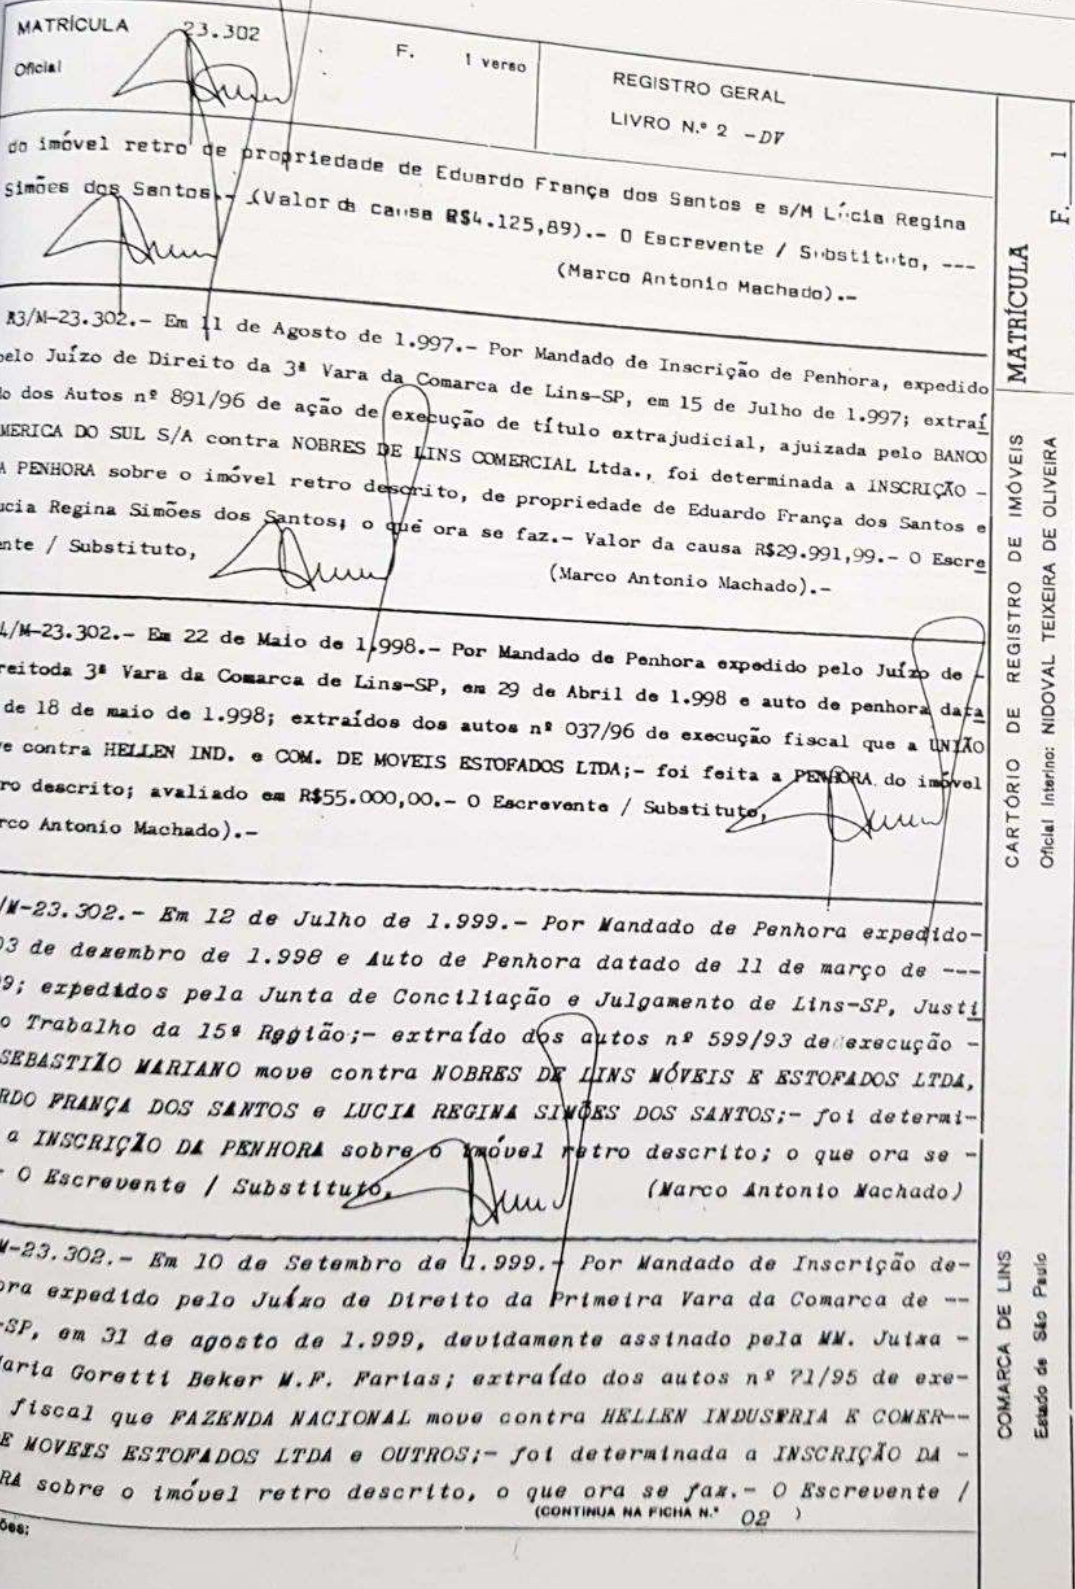 MATRÍCULA 23.302
F. 1 verso
Oficial
REGISTRO GERAL
LIVRO N.º 2 -DV
do imóvel retro de propriedade de Eduardo França dos Santos e s/M Lúcia Regina
Simões dos Santos.- (Valor da causa R$4.125,89).- O Escrevente / Substituto, ---
(Marco Antonio Machado).-
R3/M-23.302.- Em 11 de Agosto de 1.997.- Por Mandado de Inscrição de Penhora, expedido
pelo Juízo de Direito da 3ª Vara da Comarca de Lins-SP, em 15 de Julho de 1.997; extraí
do dos Autos nº 891/96 de ação de execução de título extrajudicial, ajuizada pelo BANCO
MERICA DO SUL S/A contra NOBRES DE LINS COMERCIAL Ltda., foi determinada a INSCRIÇÃO -
A PENHORA sobre o imóvel retro descrito, de propriedade de Eduardo França dos Santos e
ucia Regina Simões dos Santos; o que ora se faz.- Valor da causa R$29.991,99.- O Escre
ente / Substituto,
(Marco Antonio Machado).-
4/M-23.302.- Em 22 de Maio de 1.998.- Por Mandado de Penhora expedido pelo Juízo de -
reitoda 3ª Vara da Comarca de Lins-SP, em 29 de Abril de 1.998 e auto de penhora data
de 18 de maio de 1.998; extraídos dos autos nº 037/96 de execução fiscal que a UNIÃO
ve contra HELLEN IND. e COM. DE MOVEIS ESTOFADOS LTDA;- foi feita a PENHORA do imóvel
ro descrito; avaliado em R$55.000,00.- O Escrevente / Substituto,
rco Antonio Machado).-
/M-23.302.- Em 12 de Julho de 1.999.- Por Mandado de Penhora expedido-
03 de dezembro de 1.998 e Auto de Penhora datado de 11 de março de ---
99; expedidos pela Junta de Conciliação e Julgamento de Lins-SP, Justi
o Trabalho da 15ª Região;- extraído dos autos nº 599/93 de execução -
SEBASTIÃO MARIANO move contra NOBRES DE LINS MÓVEIS E ESTOFADOS LTDA,
RDO FRANÇA DOS SANTOS e LUCIA REGINA SIMÕES DOS SANTOS;- foi determi-
a INSCRIÇÃO DA PENHORA sobre o imóvel retro descrito; o que ora se -
- O Escrevente / Substituto,
(Marco Antonio Machado)
M-23.302.- Em 10 de Setembro de 1.999.- Por Mandado de Inscrição de-
ora expedido pelo Juízo de Direito da Primeira Vara da Comarca de --
-SP, em 31 de agosto de 1.999, devidamente assinado pela MM. Juiza -
Maria Goretti Beker M.F. Farias; extraído dos autos nº 71/95 de exe-
fiscal que FAZENDA NACIONAL move contra HELLEN INDUSTRIA E COMER--
E MOVEIS ESTOFADOS LTDA e OUTROS;- foi determinada a INSCRIÇÃO DA -
RA sobre o imóvel retro descrito, o que ora se faz.- O Escrevente /
(CONTINUA NA FICHA N.º 02 )
ões:
MATRÍCULA F. 1
CARTÓRIO DE REGISTRO DE IMÓVEIS
Oficial Interino: NIDOVAL TEIXEIRA DE OLIVEIRA
COMARCA DE LINS
Estado de São Paulo